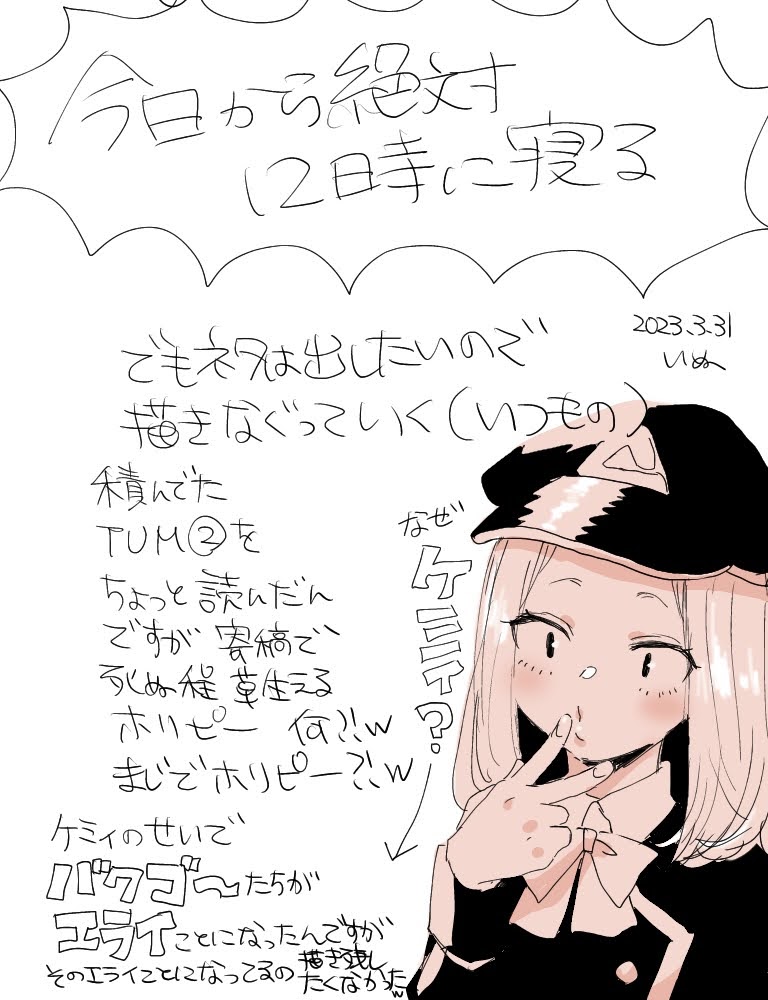 今日から絶対
12時に寝る
2023.3.31
いぬ
でもネタは出したいので
描きなぐっていく(いつもの)
積んでた
TUM②を
ちょっと読んだん
ですが 寄稿で
死ぬ程 草生える
ホリピー 何?!w
まじでホリピー?!w
なぜ
ケミィ?
ケミィのせいで
バクゴ〜たちが
エライことになったんですが
そのエライことになってるの描き残し
たくなかったw